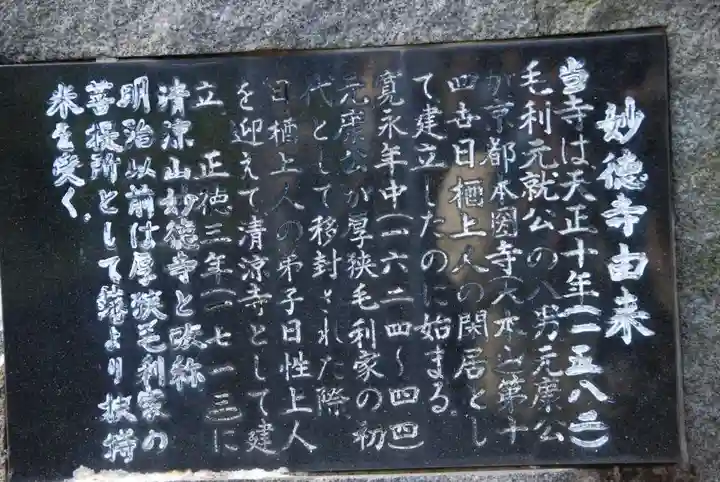 妙徳寺由来
当寺は天正十年(一五八二)
毛利元就公の八男元康公
が京都本圀寺(大本山第十
四世日栖上人の閑居とし
て建立したのに始まる。
寛永年中(一六二四〜四四)
元康公が厚狭毛利家の初
代として移封された際
日栖上人の弟子日性上人
を迎えて清涼寺として建
立 正徳三年(一七一三)に
清涼山妙徳寺と改称
明治以前は厚狭毛利家の
菩提所として藩より扶持
米を受く。